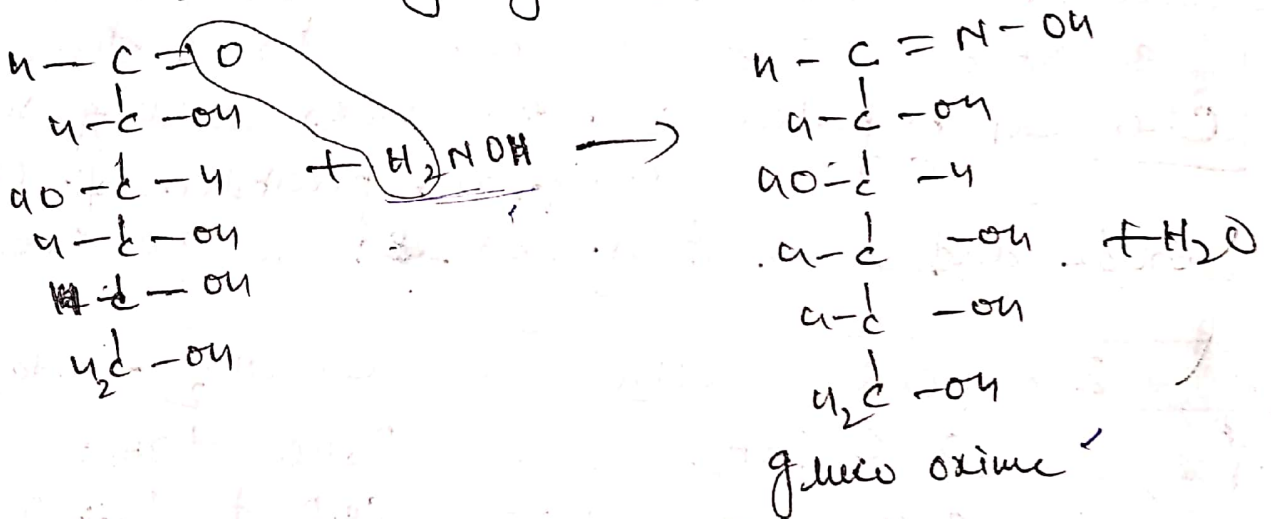 H - C = O
H - C - OH
HO - C - H + H₂NOH →
H - C - OH
H - C - OH
H₂C - OH
H - C = N - OH
H - C - OH
HO - C - H
H - C - OH + H₂O
H - C - OH
H₂C - OH
gluco oxime